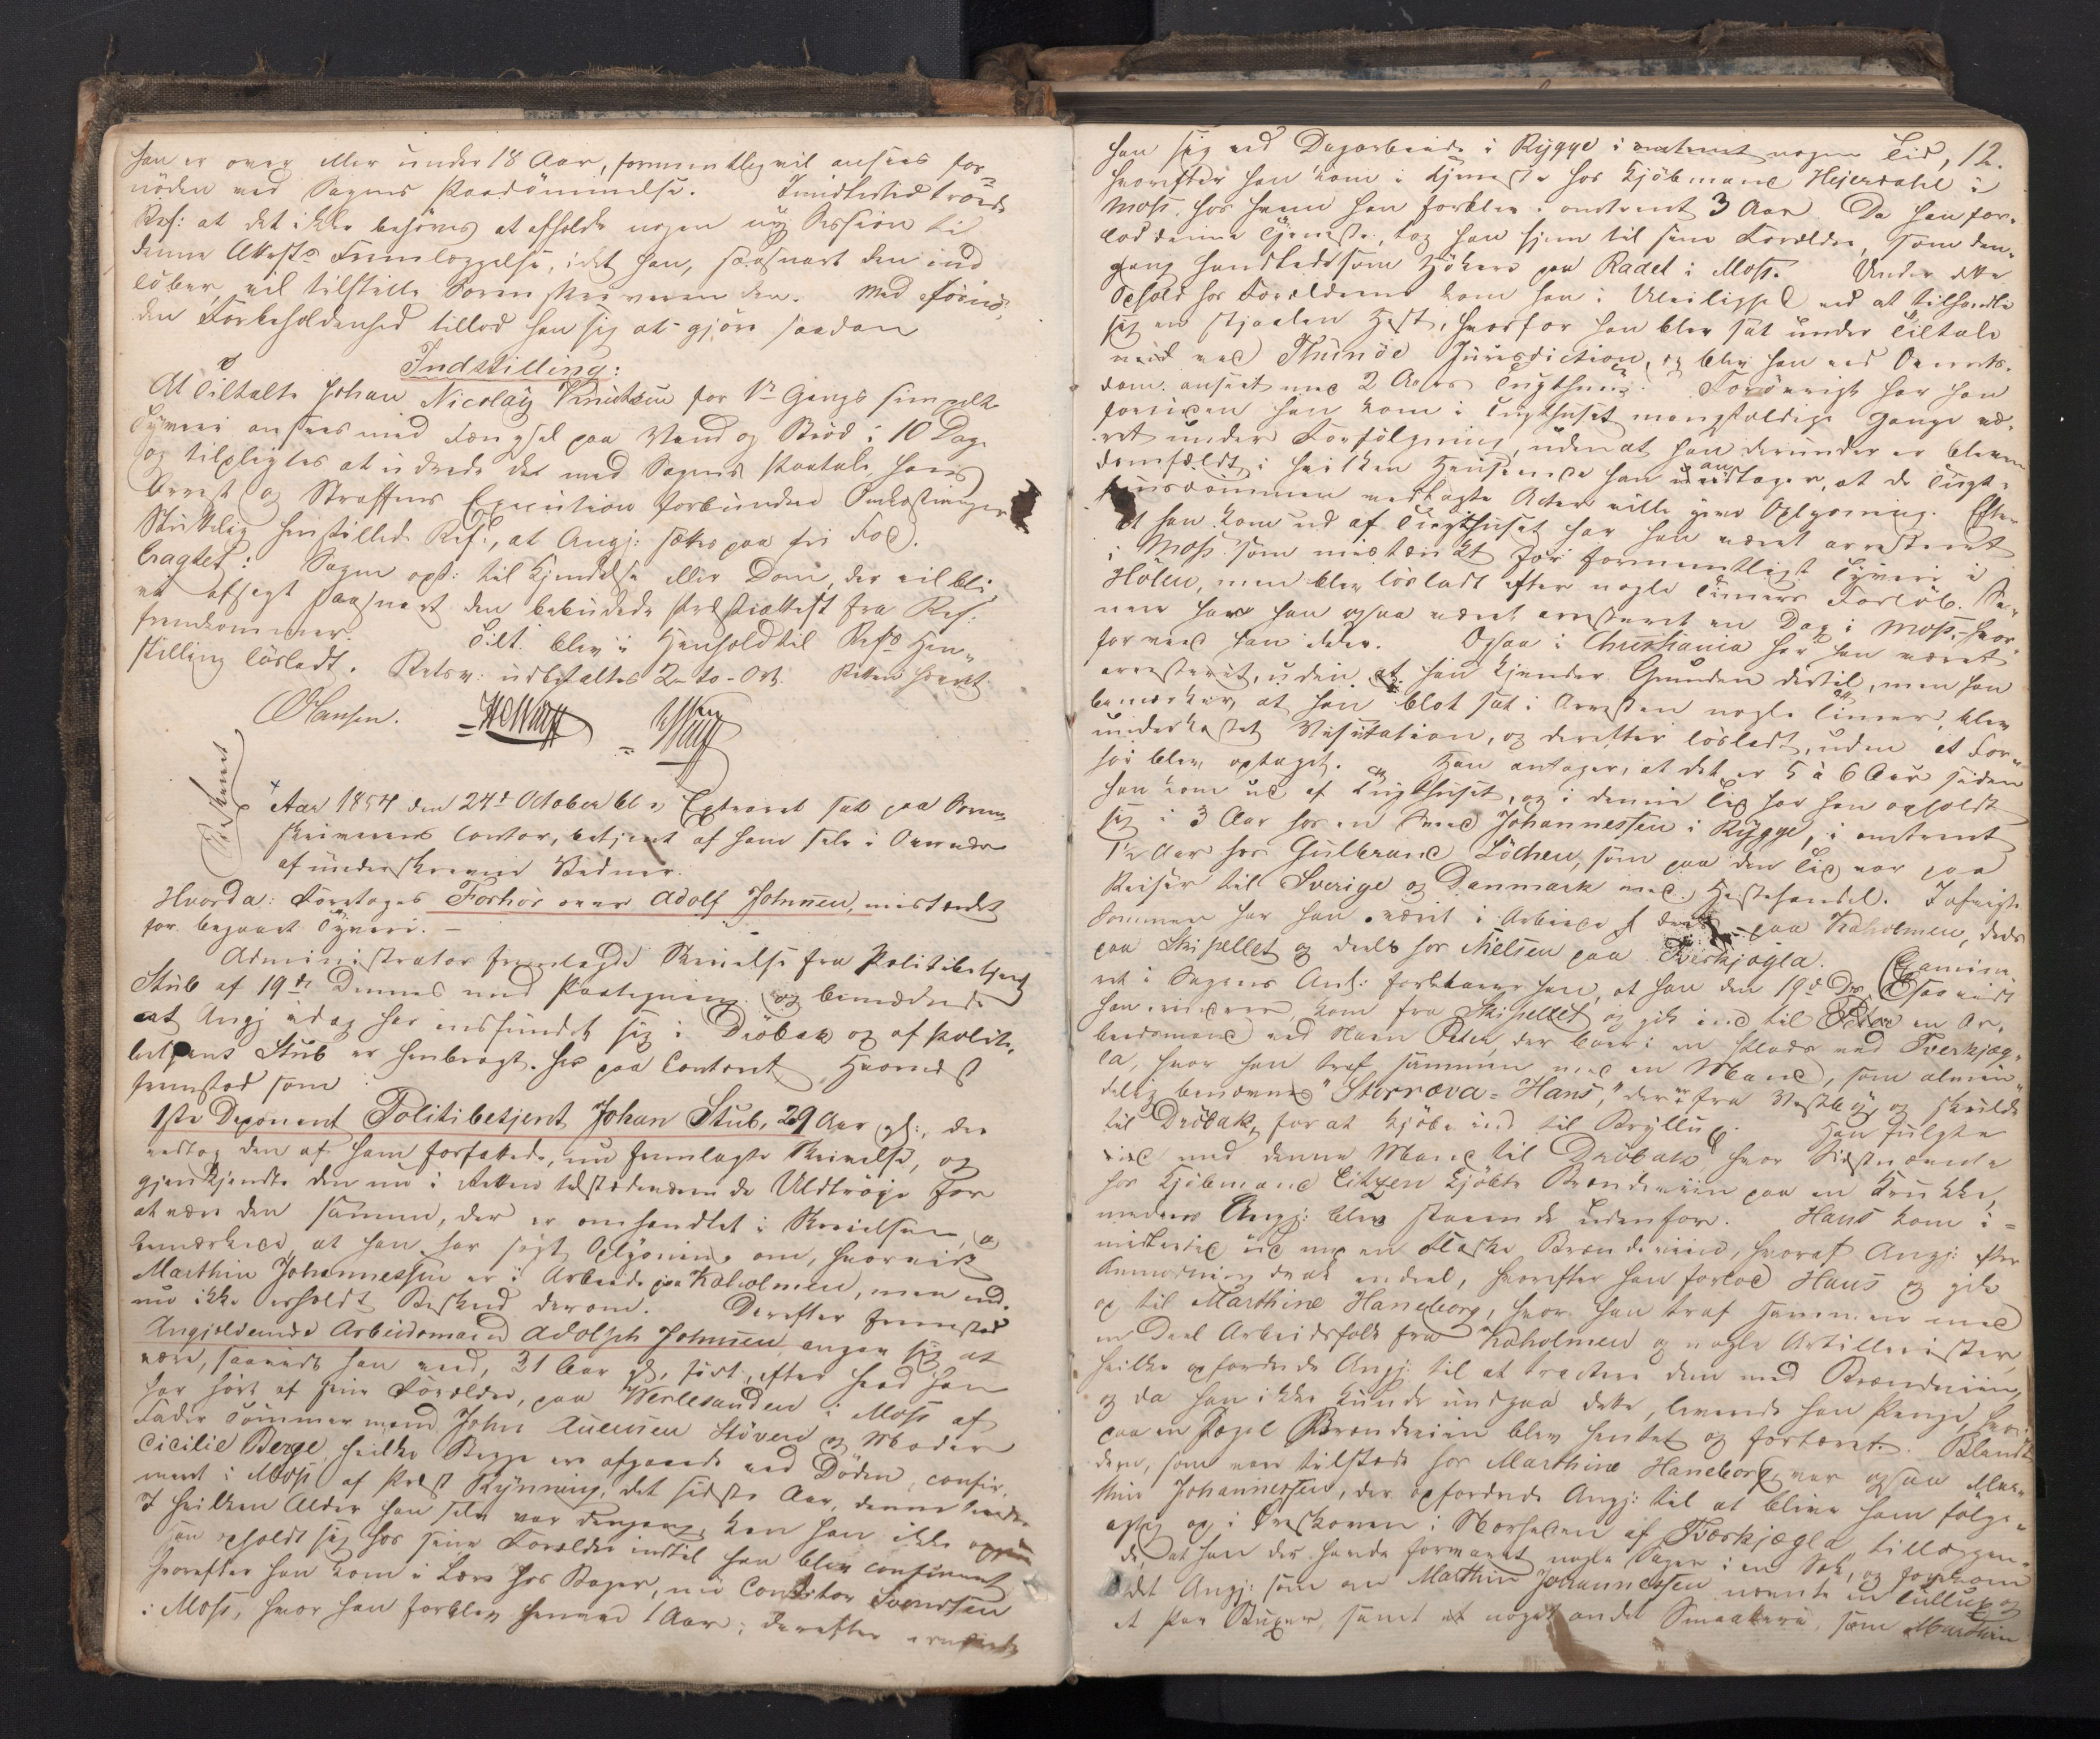 han er over eller under 18 Aar, formentlig vil ansees for-
nöden ved Sagens Paadömmelse. Imidlertid troede
Ref: at det ikke behöves at afholde nogen ny Session til
denne Attests Fremlæggelse, idet han, saasnart den ind
löber, vil tilstille Sorenskriveren den. Med
den Forbeholdenhed tillod han sig at gjöre saadan
Indstilling:
At Tiltalte Johan Nicolay Knutsen for 1ste Gangs simpelt
Tyveri ansees med Fængsel paa Vand og Bröd i 10 Dage
og tilpligtes at udrede de med Sagens Paatale, hans
Arrest og Straffens Execution forbundne Omkostninger
Skiftelig henstillede Ref:, at Angj: sættes paa fri Fod.
Eragtet: Sagen opt: til Kjendelse eller Dom, der vil bli-
ve afsagt saasnart den bebudede Præsteattest fra Ref:
fremkommer. Tilt. blev i Henhold til Refs Hen-
stilling lösladt. Retsv: udbetaltes 2 to Ort. Retten hævet
OHansen.
Aar 1854 den 24de October blev Extraret sat paa Soren-
skriverens Contor, betjent af ham selv i Overvær
af underskrevne Vidner.
Hvorda: Foretoges Forhör over Adolf Johnsen, mistænkt
for begaaet Tyveri. –
Administrator fremlagde Skrivelse fra Politibetjent
Stub af 19de Dennes med Paategning og bemærkede
at Angj idag har indfundet sig i Dröbak og af Politi-
betjent Stub er henbragt her paa Contoret, Hvornæst
fremstod som:
1ste Deponent Politibetjent Johan Stub, 29 Aar gl:, der
vedtog den af ham forfattede, nu fremlagte Skrivelse, og
gjenkjendte den nu i Retten tilstedeværende Uldtröje for
at være den samme, der er omhandlet i Skrivelsen, og
bemærkede, at han har sögt Oplysning om, hvorvidt
Marthin Johannessen er i Arbeide paa Kaholmen, men end-
nu ikke erholdt Besked derom. Derefter fremstod
Angjeldende Arbeidsmand Adolph Johnsen, angav sig at
være, saavidt han veed, 31 Aar gl, födt, efter hvad han
har hört af sine Forældre, paa Werlesanden i Moss af
Fader Tömmermand John Stöver og Moder
Cicilie Berge, hvilke Begge ere afgaaede ved Döden, confir-
meret i Moss af Præst Rynning, det sidste Aar, denne
I hvilken Alder han selv var dengang, kan han ikke
opholdt sig hos sine Forældre indtil han blev confirmeret
hvorefter han kom i Lære hos Bager, nu Conditor Svendsen
i Moss, hvor han forblev henved 1 Aar; derefter ernærede
han sig ved Dagarbeide i Rygge i omtrent nogen Tid, 12.
hvorefter han kom i Tjeneste hos Kjöbmand Hejerdahl i
Moss, hos hvem han forblev i omtrent 3 Aar. Da han for-
lod denne Tjeneste, tog han hjem til sine Forældre, som den-
gang handlede som Hökere paa Radet i Moss. Under dette
Ophold hos Forældrene kom han i Uleilighed ved at tilhandle
sig en stjaalen Hest, hvorfor han blev sat under Tiltale
ved Thunöe Jurisdiction, og blev han ved Overrets-
dom anseet med 2 Aars Tugthuus. Forövrigt har han
forinden han kom i Tugthuset mangfoldige Gange væ-
ret under Forfölgning, uden at han derunder er bleven
domfældt, i hvilken Henseende han antager, at de Tugt-
huusdommen vedlagte Acter ville give Oplysning. Efter
at han kom ud af Tugthuset har han været arresteret
i Moss som mistænkt for formentligt Tyveri i
Hölen, men blev lösladt efter nogle Timers Forlöb. Se-
nere har han ogsaa været arresteret en Dag i Moss, hvor-
for veed han ikke. Ogsaa i Christiania har han været
arresteret, uden at han kjender Grunden dertil, men han
bemærker, at han blot sat i Arresten nogle Timer, blev
underkastet Visitation, og derefter lösladt, uden at For-
hör blev optaget. Han antager, at det er 5 à 6 Aar siden
han kom ud af Tugthuset, og i denne Tid har han opholdt
sig i 3 Aar hos en Svend Johannessen i Rygge, i omtrent
1½ Aar hos Gulbrand Löchen, som paa den Tid var paa
Reiser til Sverige og Danmark med Hestehandel. Iafvigte
Sommer har han været i Arbeide deels paa Kaholmen, deels
paa Skiphellet og deels hos Nielsen paa Tverkjægla. Examine-
ret i Sagens Anl: forklarer han, at han den 19de Ds, saavidt
han erindrer, kom fra Skiphellet og gik ind til en Ar-
beidsmand ved Navn Peter, der boer i en Plads ved Tverkjæg-
la, hvor han traf sammen med en Mand, som almin-
delig benævnes "Storræva-Hans," der er fra Vestby og skulde
til Dröbak, for at kjöbe ind til Bryllup. Han fulgte
ind med denne Mand til Dröbak, hvor Sidstnævnte
hos Kjöbmand Citzen kjöbte Brændeviin paa en Krukke,
medens Angj: blev staaende udenfor. Hans kom i-
midlertid ud med en Flaske Brændeviin, hvoraf Angj: efter
Anmodning drak endeel, hvorefter han forlod Hans og gik
op til Marthine Haneborg, hvor han traf sammen med
en Deel Arbeidsfolk fra Kaholmen og nogle Artillerister,
hvilke opfordrede Angj: til at tractere dem med Brændeviin,
og da han ikke kunde undgaa dette, leverede han Penge, hvor-
paa en Pægel Brændeviin blev hentet og fortæret. Blandt
dem, som var tilstede hos Marthine Haneborg, var ogsaa Mar-
thin Johannessen, der opfordrede Angj: til at blive ham fölge-
agtig op i Öreskoven i Nærheden af Tverkjægla, tillæggen-
de at han der havde forvaret nogle Sager i en Sæk, og
idet Angj: som om Marthin Johannessen nævnte en Tullup og
et Par Buxer, samt noget andet Smaakram, som Marthin